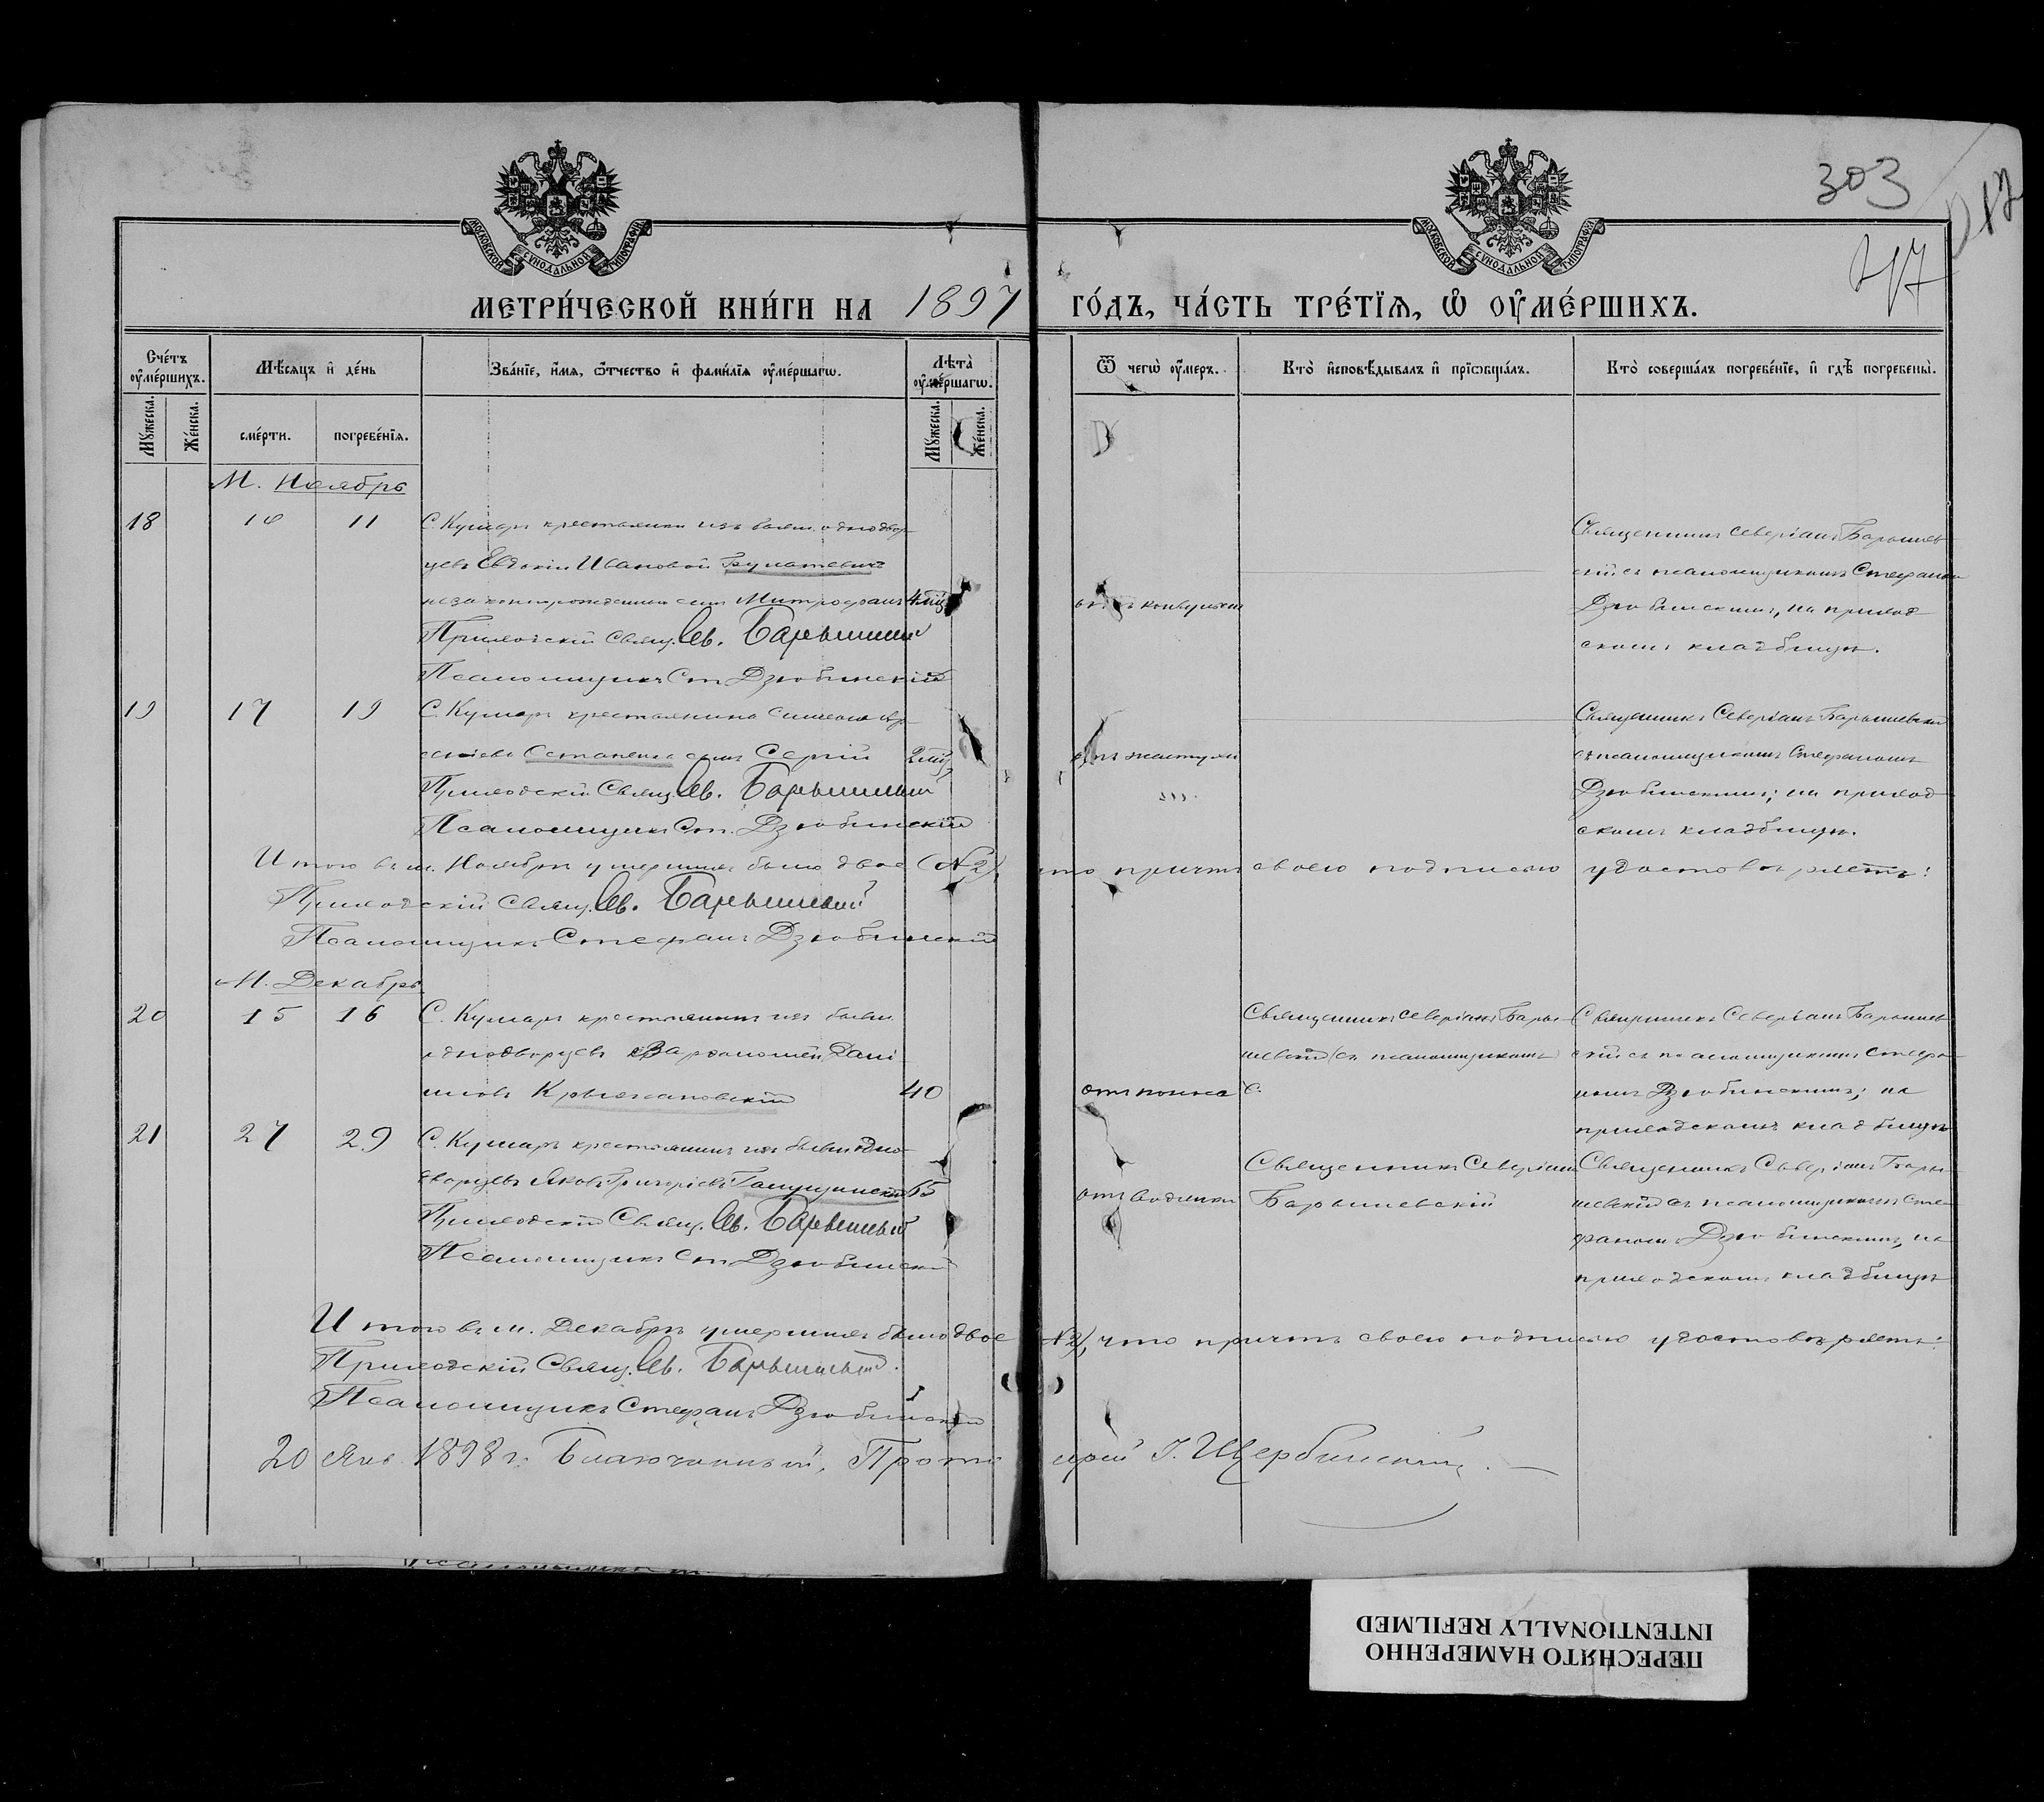 303
217
МОСКОВСКОЙ СУНОДАЛЬНОЙ ТИПОГРАФІИ
МОСКОВСКОЙ СУНОДАЛЬНОЙ ТИПОГРАФІИ
МЕТРИ́ЧЕСКОЙ КНИ́ГИ НА 1897 ГО́ДЪ, ЧА́СТЬ ТРЕ́ТЇѦ, Ѡ҆ ОУ҆МЕ́РШИХЪ.
Сче́тъ оу҆ме́ршихъ.
Мѣ́сяцъ и҆ де́нь
Зва́нїе, и҆́мя, ѻ҆́тчество и҆ фами́лїя оу҆ме́ршагѡ.
Лѣта̀ оу҆ме́ршагѡ.
Ѿ чегѡ̀ оу҆́меръ.
Кто̀ и҆сповѣ́дывалъ и҆ прїѡбща́лъ.
Кто̀ соверша́лъ погребе́нїе, и҆ гдѣ̀ погребены̀.
Мꙋ́жеска.
Же́нска.
сме́рти.
погребе́нїя.
Мꙋ́жеска.
Же́нска.
М. Ноябрь
18 10 11 С. Кумаръ крестьянки изъ бывш. однодвор-
цевъ Евдокіи Ивановой
незаконнорожденный сынъ Митрофанъ 4 мѣс.
Приходскій Свящ. Сев. Барышевскій
Псаломщикъ Ст. Дзюбинскій
Священникъ Северіанъ Барышев-
скій съ псаломщикомъ Стефаном
Дзюбинскимъ, на приход
скомъ кладбищѣ.
19 17 19 С. Кумаръ крестьянина
сынъ Сергій 2 мѣс.
Приходскій Свящ. Сев. Барышевскій
Псаломщикъ Ст. Дзюбинскій
Священникъ Северіанъ Барышевскій
съ псаломщикомъ Стефаномъ
Дзюбинскимъ; на приход
скомъ кладбищѣ.
Итого въ м. Ноябрѣ умершихъ было двое (№ 2), что причтъ своею подписью удостовѣряетъ:
Приходскій Свящ. Сев. Барышевскій
Псаломщикъ Стефанъ Дзюбинскій
М. Декабрь
20 15 16 С. Кумаръ крестьянинъ изъ бывш.
однодворцевъ Варѳоломей Дані
иловъ Крыжановскій 40
Священникъ Северіанъ Бары-
шевскій (съ псаломщикомъ)
Священникъ Северіанъ Барышев
скій съ псаломщикомъ Стефа-
номъ Дзюбинскимъ; на
приходскомъ кладбищѣ
21 27 29 С. Кумаръ крестьянинъ изъ бывш. одно-
дворцевъ Яковъ Григоріевъ 65
Приходскій Свящ. Сев. Барышевскій
Псаломщикъ Ст. Дзюбинскій
отъ водянки
Священникъ Северіанъ
Барышевскій
Священникъ Северіанъ Бары-
шевскій съ псаломщикомъ Сте-
фаномъ Дзюбинскимъ, на
приходскомъ кладбищѣ
Итого въ м. Декабрѣ умершихъ было двое (№ 2), что причтъ своею подписью удостовѣряетъ:
Приходскій Свящ. Сев. Барышевскій.
Псаломщикъ Стефанъ Дзюбинскій
20 Янв. 1898 г. Благочинный, Протоіерей І. Щербинскій.
ПЕРЕСНЯТО НАМЕРЕННО
INTENTIONALLY REFILMED